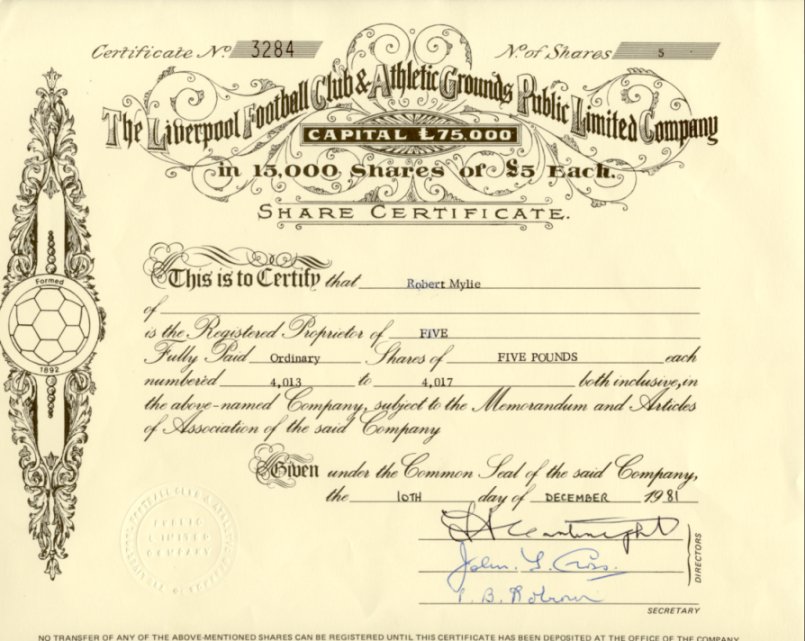 Certificate No. 3284 No. of Shares 5
The Liverpool Football Club & Athletic Grounds Public Limited Company
CAPITAL £75,000
in 15,000 Shares of £5 Each.
SHARE CERTIFICATE.
This is to Certify that Robert Mylie
of
is the Registered Proprietor of FIVE
Fully Paid Ordinary Shares of FIVE POUNDS each
numbered 4,013 to 4,017 both inclusive, in
the above-named Company, subject to the Memorandum and Articles
of Association of the said Company
Given under the Common Seal of the said Company,
the 10TH day of DECEMBER 1981
Formed
1892
PUBLIC
LIMITED
COMPANY
John
DIRECTORS
SECRETARY
NO TRANSFER OF ANY OF THE ABOVE-MENTIONED SHARES CAN BE REGISTERED UNTIL THIS CERTIFICATE HAS BEEN DEPOSITED AT THE OFFICE OF THE COMPANY